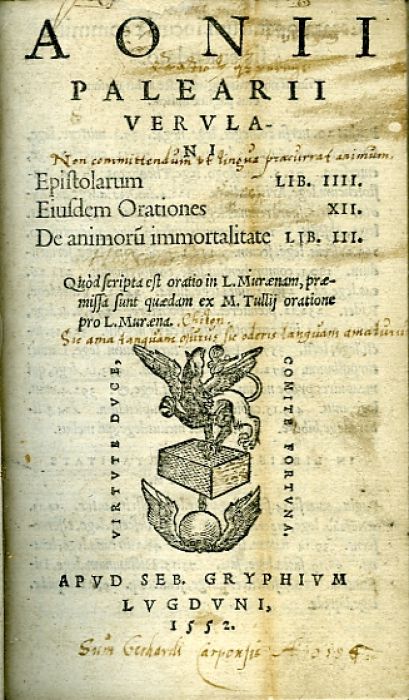 AONII
PALEARII
VERVLA-
NI.
Non committendum ut lingua præcurrat animum.
Epistolarum LIB. IIII.
Eiusdem Orationes XII.
De animorū immortalitate LIB. III.
Quòd scripta est oratio in L. Murænam, præ-
missa sunt quædam ex M. Tullij oratione
pro L. Muræna. Chilon
Sic ama tanquam osurus sic oderis tanquam amaturus
VIRTVTE DVCE,
COMITE FORTVNA.
APVD SEB. GRYPHIVM
LVGDVNI,
1552.
Sum Gerhardi